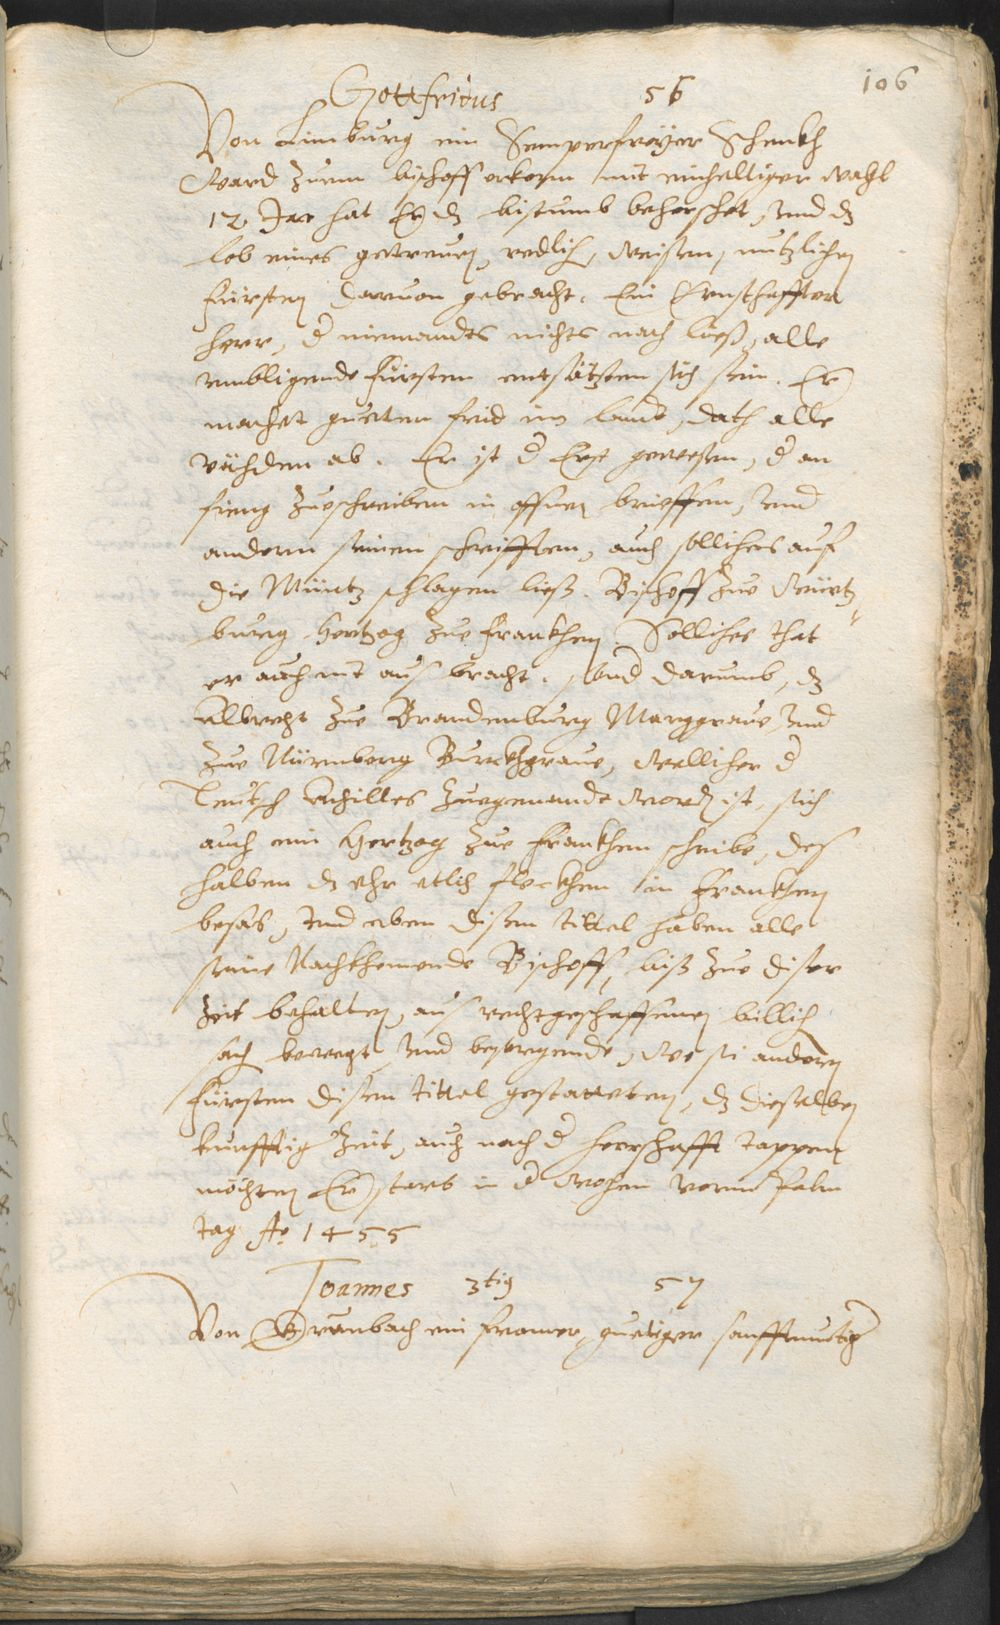 106
Gottfridus 56
Von Limburg ein Semperfreyer Schenkh
Ward zuem bischoff erkorn mit einhelliger wahl
12 Jar hat Er dz bistumb beherschet, vnd dz
lob eines getreuen, redlich, weisen, nutzlichen
fürsten daruon gebracht. Ein Ernsthaffter
herr, d niemandts nichts nach liess, alle
vmbligende fürsten entsätzten sich sein. Er
machet gueten frid im landt, dath alle
vächden ab. Er ist d Erst gewesen, d an
fieng zueschreiben in offnen brieffen, vnd
andern seinen schrifften, auch sollichs auf
die Müntz schlagen liess. Bischoff zue Würtz
burg Hertzog zue frankhen. Solliches that
er auch nit aus bracht. Vnd darumb, dz
Albrecht zue Brandenburg Marggraue vnd
zue Nürmberg Burckhgraue, wellicher d
Teutsch Achilles zuegenandt word ist, sich
auch ein Hertzog zue frankhen schribe, des
halben dz ehr etlich fleckhen in frankhen
besas, vnd eben disen tittel haben alle
seine Nachkhomende Bischoff, biss zue diser
Zeit behalten, aus rechtgeschaffenen billich
sach bewegt vnd besorgende, wo si andern
fürsten disen tittel gestatteten, dz dieselben
kunfftig Zeit, auch nach d herrschafft tappen
möchten Er starb in d wochen vorm palm
tag Ao 1455
Joannes 3tig 57
Von Grunbach ein fromer, guetiger sanfftmuetig